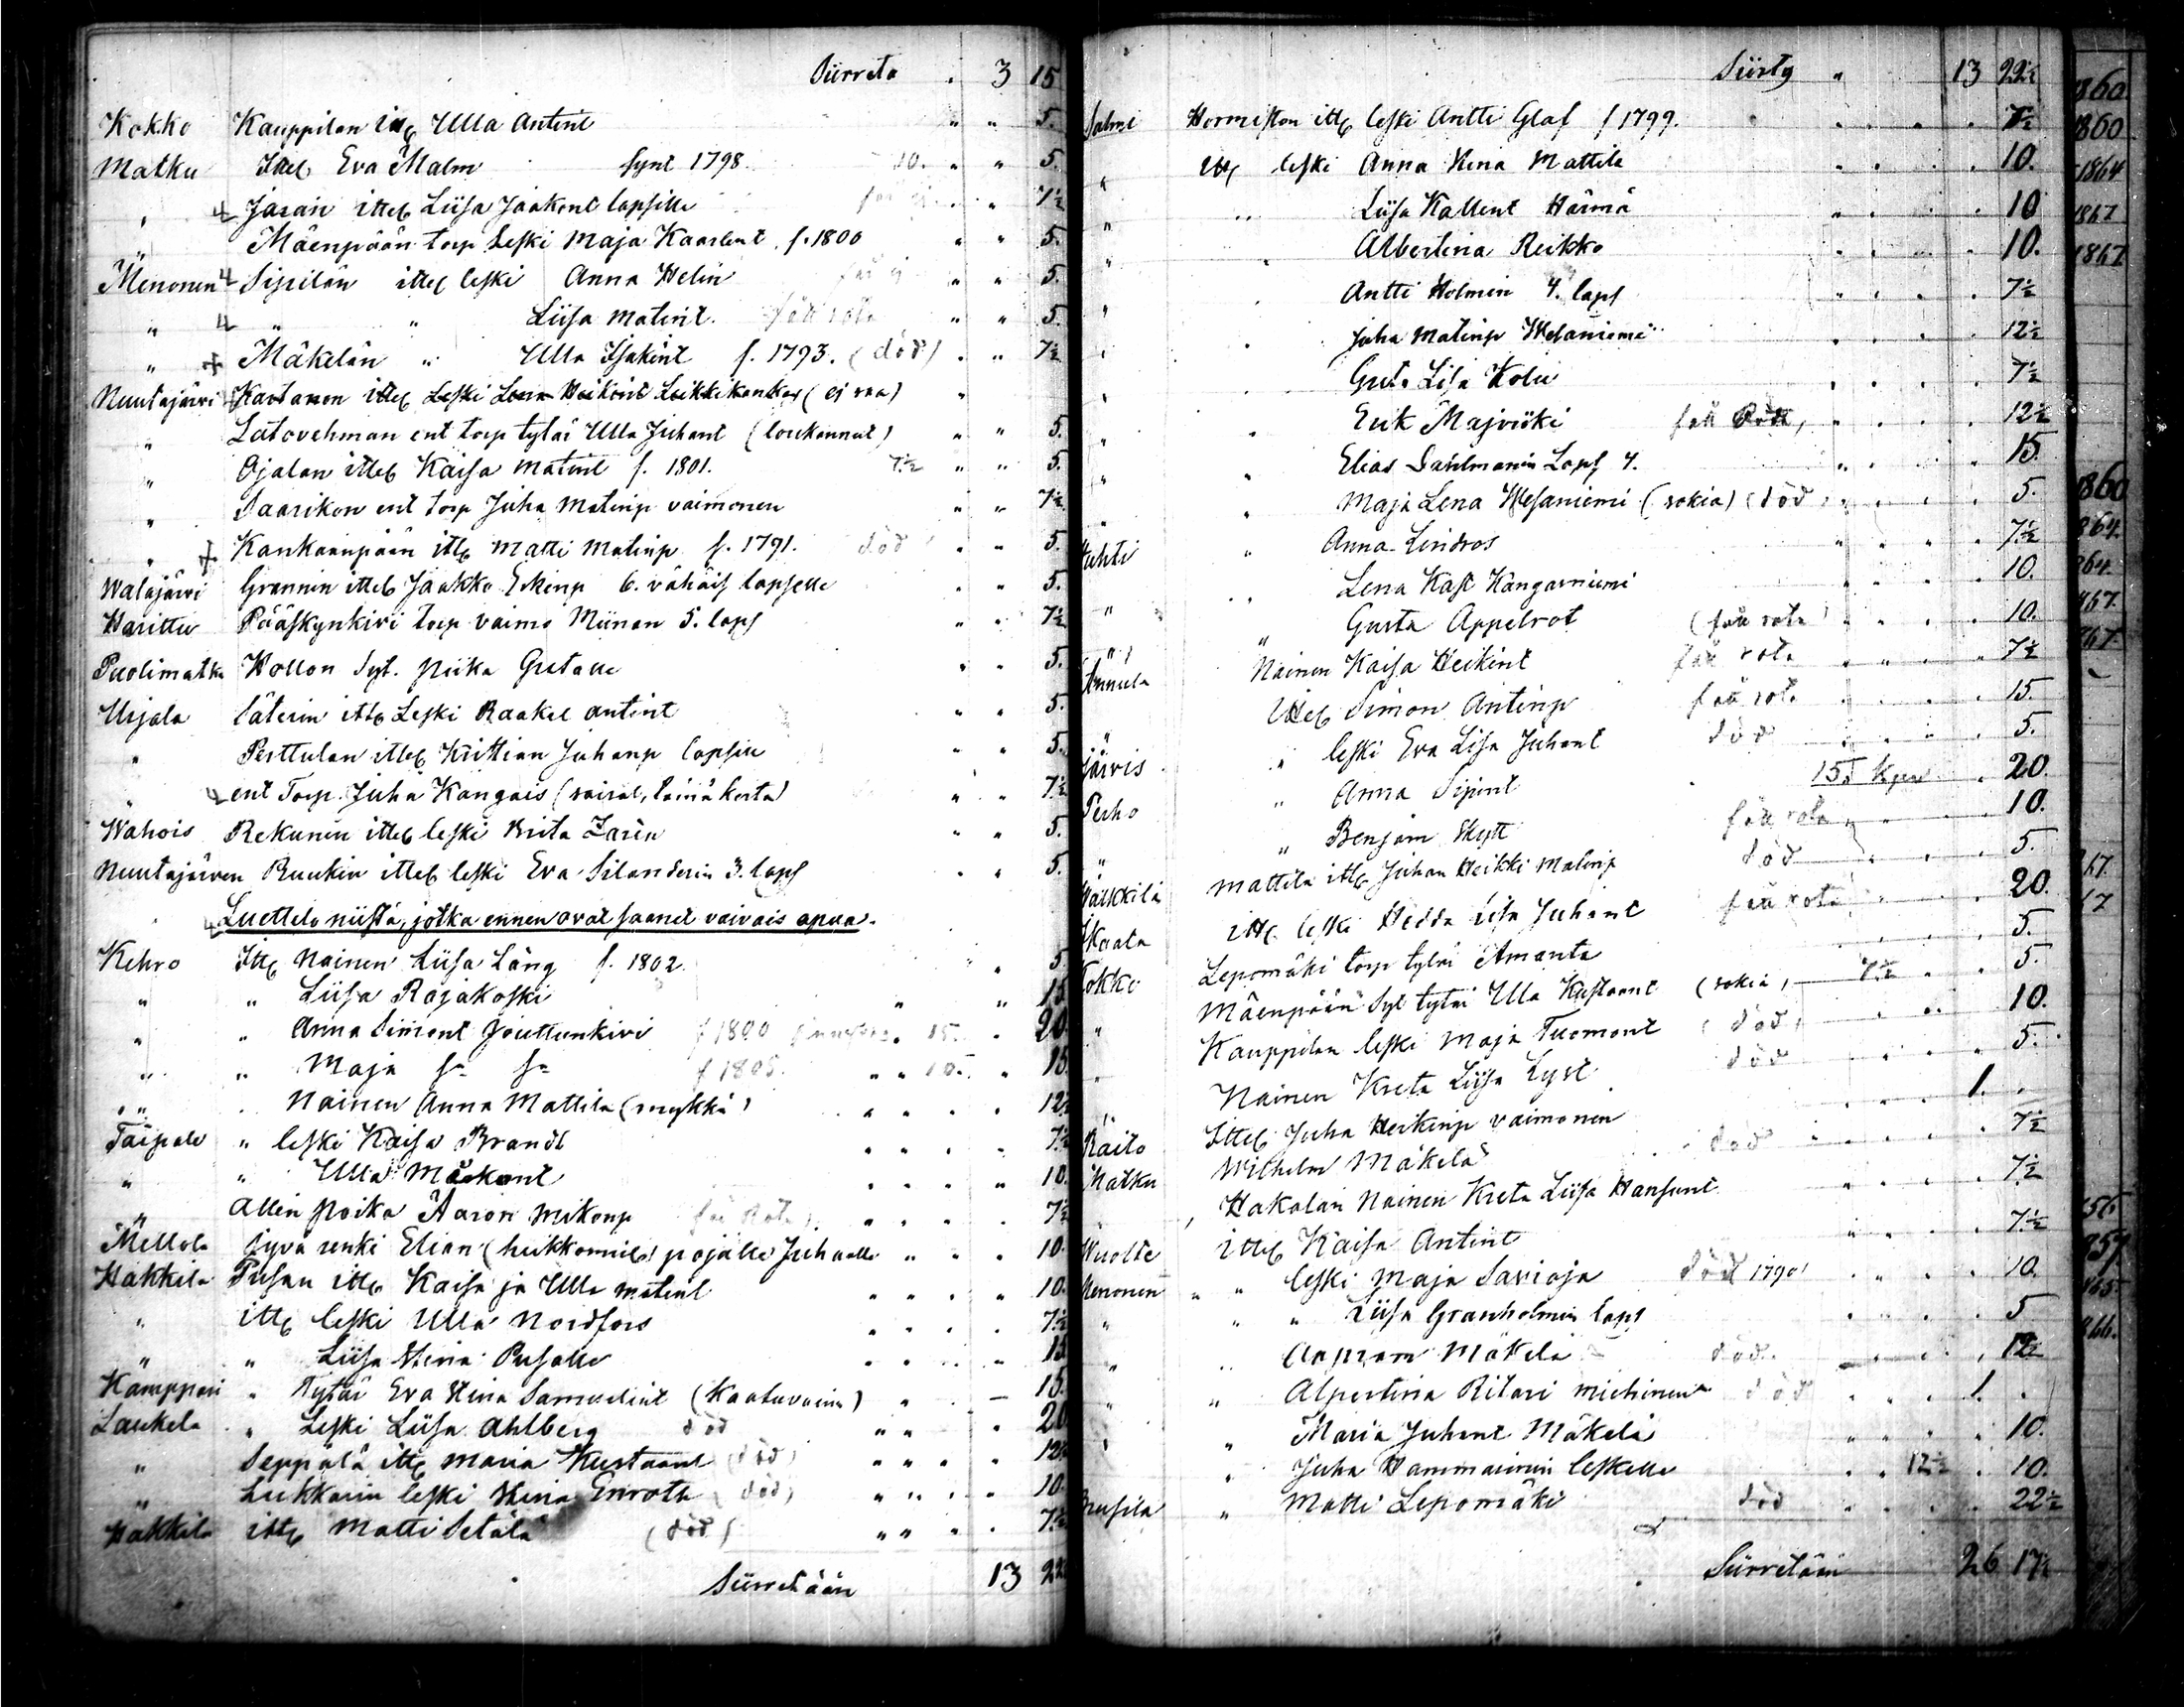 Siirreto . 3 15
Kokko Kauppilan itg Ulla Antint " " 5.
Matku Ittel Eva Malm synt 1798. 10. " " 5.
" Jaran ittel Liisa Jaakont lapsille " 7½
" Mäenpään torp Leski Maja Kaarlent f. 1800 " " 5.
Menonen Sipilän ittel leski Anna Helin " " 5.
" " " Liisa Matint. får rota " " 5.
" Mäkelän " Ulla Isakint f. 1793. (död) " " 7½
Nuutajärvi Kartanon ittel Leski Lena Heikint Leikkikankas (ej raa) "
" Latovehman ent torp tytär Ulla Juhant (loukannut) " " 5.
" Ojalan ittel Kaisa Matint f. 1801. 7½ " " 5.
" Saarikon ent torp Juha Matinp vaimonen " " 7½
" Kankaanpään ittg Matti Matinp f. 1791. död " " 5.
Walajärvi Grannin ittel Jaakko Erkinp 6. vähäis lapselle " " 5.
Harittu Pääskynkivi torp vaimo Miinan 5. laps " " 7½
Puolimatka Hollon Syt. piika Gustava " " 5.
Urjala Säterin ittg Leski Raakel Antint " " 5.
" Perttulan ittel Kristian Juhanp lapsille " " 5.
" ent Torp. Juha Kangais (sairas, tämä kerta) " " 7½
Wahois Rekunin ittel leski Brita Zarin " " 5.
Nuutajärven Ruukin ittel leski Eva Silanderin 3. laps " " 5.
Luettelo niistä, jotka ennen ovat saanet vaivais apua.
Kehro Ittg Nainen Liisa Läng f. 1802. " 5
" " Liisa Rajakoski " " 15
" " Anna Simont Jouttunkivi f 1800 15. " 20
" " Maja f 1805. " " 10. " 15.
" " Nainen Anna Mattila (mykkä) " " " 12½
Taipale " leski Kaisa Brandt " " " " 7½
" " Ulla Maskont " " " " 10.
" Allin poika Aaron Mikonp får Rota " " " 7½
Mellola Syvä renki Elian (heikkomiel) pojalle Juhalle " " " 10.
Hakkila Pusan ittg Kaisa ja Ulla Matint " " " " 10.
" ittg leski Ulla Nordfors " " " " 7½
" " Liisa Stina Pusalle " " " " 15
Kamppari " Tytär Eva Stina Samuelint (Kaatuvainen) " " 15.
Laukela " Leski Liisa Ahlberg död " " " 20
" Seppälä ittg Maria Kustaant (död) " " " " 12½
" Luhkarin leski Stina Enroth (död) " " " " 10.
Hakkila ittg Matti Setälä (död) " " " " 7½
Siirretään 13 22½
Siirty " 13 22½
Salmi Hormiston ittg leski Antti Glaf f 1799. " " " 7½
" ittg leski Anna Stina Mattila " " " 10.
" " Liisa Kallent Härmä " " " 10
" " Albertina Reikko " " " 10.
" " Antti Holmin 4. laps " " " 7½
" " Juha Matinp Wesaniemi " " " 12½
" " Gust. Lisa Kolu " " " 7½
" " Erik Majviöki får Rota " " " 12½
" " Elias Dahlmanin Laps 4. " " " 15.
" " Maja Lena Wesaniemi (sokia) (död) " " " 5.
Huhti " Anna Lindros " " " 7½
" Lena Kast Kangasniemi 10.
" " Gusta Appelrot (får rota) " " " 10.
" Nainen Kaisa Heikint får rota " " " 7½
Annula Ittel Simon Antinp får rota " " " 15.
" " leski Eva Lisa Juhant död " " " 5.
Järvis " Anna Sipint 15 kpr " 20.
Perho " Benjam Skytt får rota " " 10.
" Mattila ittg Juhan Heikki Matinp död " " " 5.
Wälkkilä ittg leski Hedda Lisa Juhant får rota " " 20.
Skaata Lepomäki torp tytär Amanta " " " 5.
Kokko Mäenpään Syt tytär Ulla Kustaant (sokia) 7½ " " 5.
" Kauppilan leski Maja Tuomont (död) " " 10.
" Nainen Kreta Liisa Lyst död " " " 5.
" Ittel Juha Heikinp vaimonen " " " 1. "
Raito Wilhelm Mäkelä död " " " 7½
Matku Hakalan Nainen Kreta Liisa Hansunt " " " 7½
Nuolte ittel Kaisa Antint " " " 7½
Menonen " " leski Maja Savioja död 1790 " " " 10.
" " " Liisa Granholmin laps " " " 5
" " Aapram Mäkelä död. " " 12½
" " Alpertina Ritari miehinen död " " 1. "
" " Maria Juhant Mäkelä " " " 10.
" " Juha Hammarinin leskelle " " 12½ " 10.
Hnusila " Matti Lepomäki död " " " 22½
Siirretään 26 17½
1860
1860
1864
1867
1867
1860
1864
864
867
767
67
67
56
857
865
866.